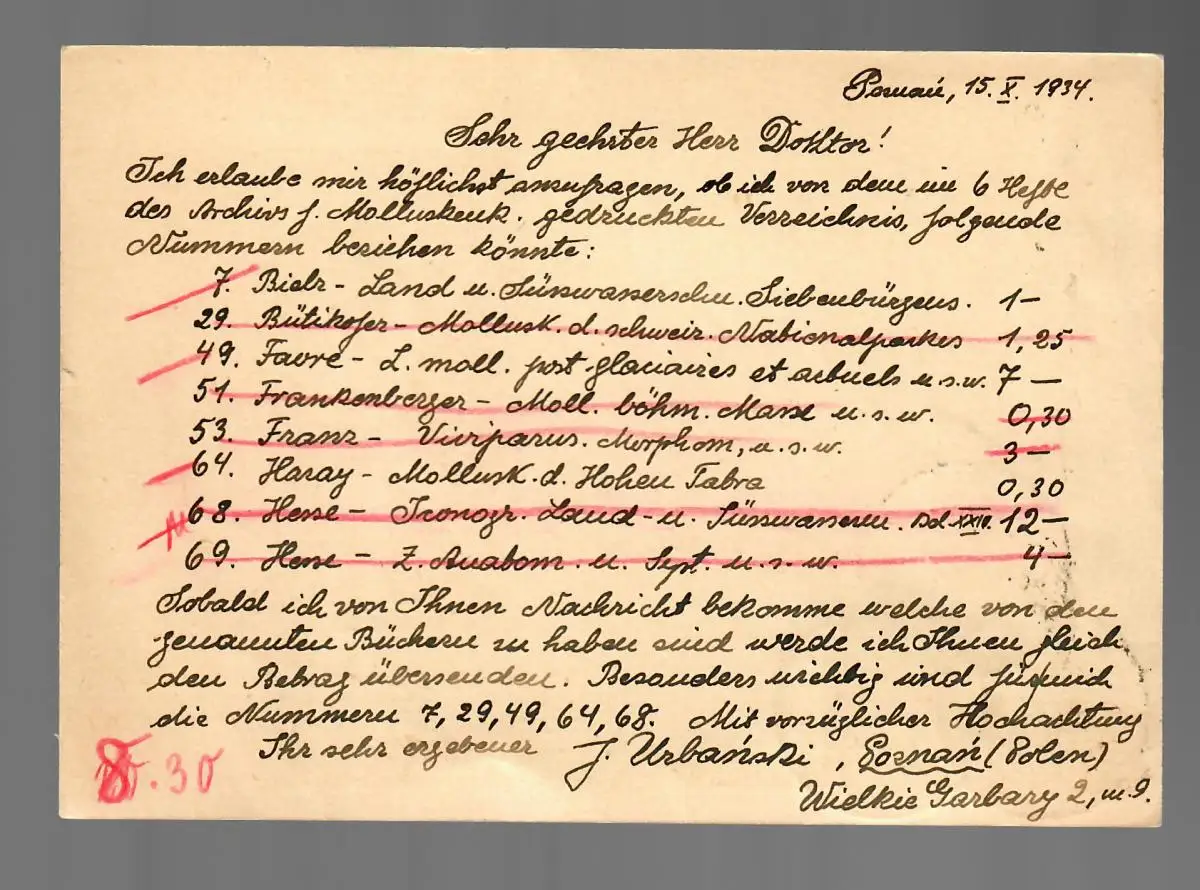 Poznań, 15. X. 1934.
Sehr geehrter Herr Doktor!
Ich erlaube mir höflichst anzufragen, ob ich von dem im 6 Hefte
des Archivs f. Molluskenk. gedruckten Verzeichnis, folgende
Nummern beziehen könnte:
7. Bielz - Land u. Süsswassersch. Siebenbürgens. 1-
29. Bütikofer - Mollusk. d. schweiz. Nationalparkes 1,25
49. Favre - L. moll. post glaciaires et actuels u.s.w. 7 -
51. Frankenberger - Moll. böhm. Masse u. s. w. 0,30
53. Franz - Viviparus. Morphom, u. s. w. 3-
64. Hazay - Mollusk. d. Hohen Tatra 0,30
68. Hesse - Iconogr. Land- u. Süsswasserm. Bd. XXIII. 12-
69. Hesse - Z. Anatom. u. Syst. u. s. w. 4-
Sobald ich von Ihnen Nachricht bekomme welche von den
genannten Büchern zu haben sind werde ich Ihnen gleich
den Betrag übersenden. Besonders wichtig sind für mich
die Nummern 7, 29, 49, 64, 68. Mit vorzüglicher Hochachtung
Ihr sehr ergebener J. Urbański, Poznań (Polen)
8.30
Wielkie Garbary 2, m. 9.